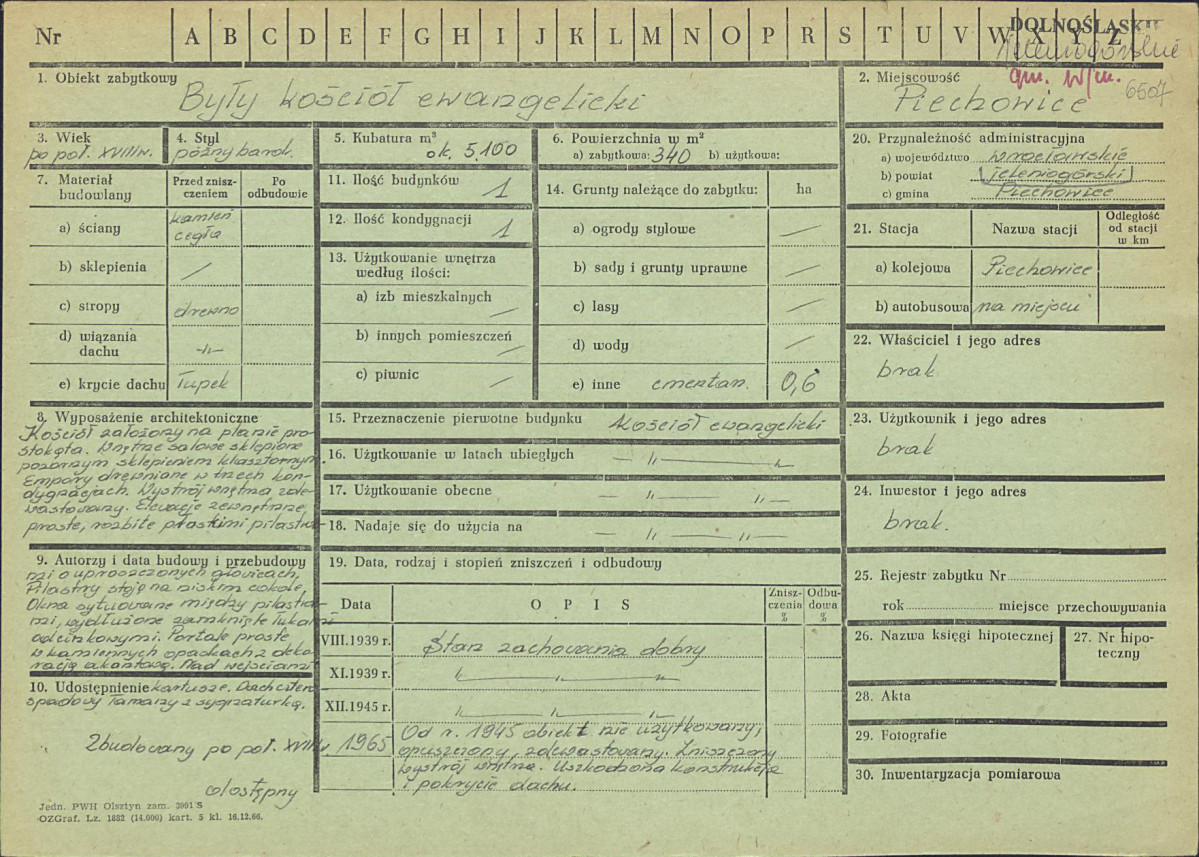 Nr A B C D E F G H I J K L M N O P R S T U V W X Y Z
DOLNOŚLĄSKIE
Jeleniogórskie
gm. w/m.
6507
1. Obiekt zabytkowy
Były kościół ewangelicki
2. Miejscowość
Piechowice
3. Wiek
po poł. XVIII w.
4. Styl
późny barok.
5. Kubatura m³
ok. 5.100
6. Powierzchnia w m²
a) zabytkowa: 340 b) użytkowa:
7. Materiał budowlany
Przed zniszczeniem
Po odbudowie
a) ściany kamień
cegła
b) sklepienia —
c) stropy drewno
d) wiązania
dachu -„-
e) krycie dachu Łupek
8. Wyposażenie architektoniczne
Kościół założony na planie pro-
stokąta. Wnętrze salowe sklepione
pozornym sklepieniem klasztornym.
Empory drewniane w trzech kon-
dygnacjach. Wystrój wnętrza zde-
wastowany. Elewacje zewnętrzne
proste, rozbite płaskimi pilastra-
9. Autorzy i data budowy i przebudowy
mi o uproszczonych głowicach,
Pilastry stoją na niskim cokole,
Okna sytuowane między pilastra-
mi, wydłużone zamknięte łukami
odcinkowymi. Portale proste
w kamiennych opaskach z deko-
racją akantową. Nad wejściami
10. Udostępnienie kartusze. Dach cztero
spadowy łamany z sygnaturką.
Zbudowany po poł. XVIII w.
dostępny
11. Ilość budynków 1
12. Ilość kondygnacji 1
13. Użytkowanie wnętrza
według ilości:
a) izb mieszkalnych —
b) innych pomieszczeń —
c) piwnic —
14. Grunty należące do zabytku: ha
a) ogrody stylowe —
b) sady i grunty uprawne —
c) lasy —
d) wody —
e) inne cmentarz. 0,6
15. Przeznaczenie pierwotne budynku Kościół ewangelicki
16. Użytkowanie w latach ubiegłych — „ — „
17. Użytkowanie obecne — „ — „ —
18. Nadaje się do użycia na — „ — „ —
19. Data, rodzaj i stopień zniszczeń i odbudowy
Data
O P I S
Znisz-
czenia
%
Odbu-
dowa
%
VIII.1939 r. Stan zachowania dobry
XI.1939 r. „ — „ — „
XII.1945 r. „ — „ — „
1965 Od r. 1945 obiekt nie użytkowany,
opuszczony, zdewastowany. Zniszczony
wystrój wnętrza. Uszkodzona konstrukcja
i pokrycie dachu.
20. Przynależność administracyjna
a) województwo wrocławskie
b) powiat jeleniogórski
c) gmina Piechowice
21. Stacja
Nazwa stacji
Odległość
od stacji
w km
a) kolejowa Piechowice
b) autobusowa na miejscu
22. Właściciel i jego adres
brak
23. Użytkownik i jego adres
brak
24. Inwestor i jego adres
brak.
25. Rejestr zabytku Nr
rok miejsce przechowywania
26. Nazwa księgi hipotecznej
27. Nr hipo-
teczny
28. Akta
29. Fotografie
30. Inwentaryzacja pomiarowa
Jedn. PWH Olsztyn zam. 3901 S
OZGraf. Lz. 1882 (14.000) kart. 5 kl. 16.12.66.